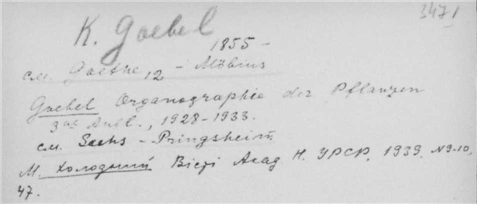 3471
K. Goebel
1855 -
см. Goethe 12 - Möbius
Goebel Organographie der Pflanzen
3te Aufl., 1928-1933.
см. Sachs - Pringsheim
М. Холодний Вісті Акад Н. УРСР, 1939, N 9-10,
47.